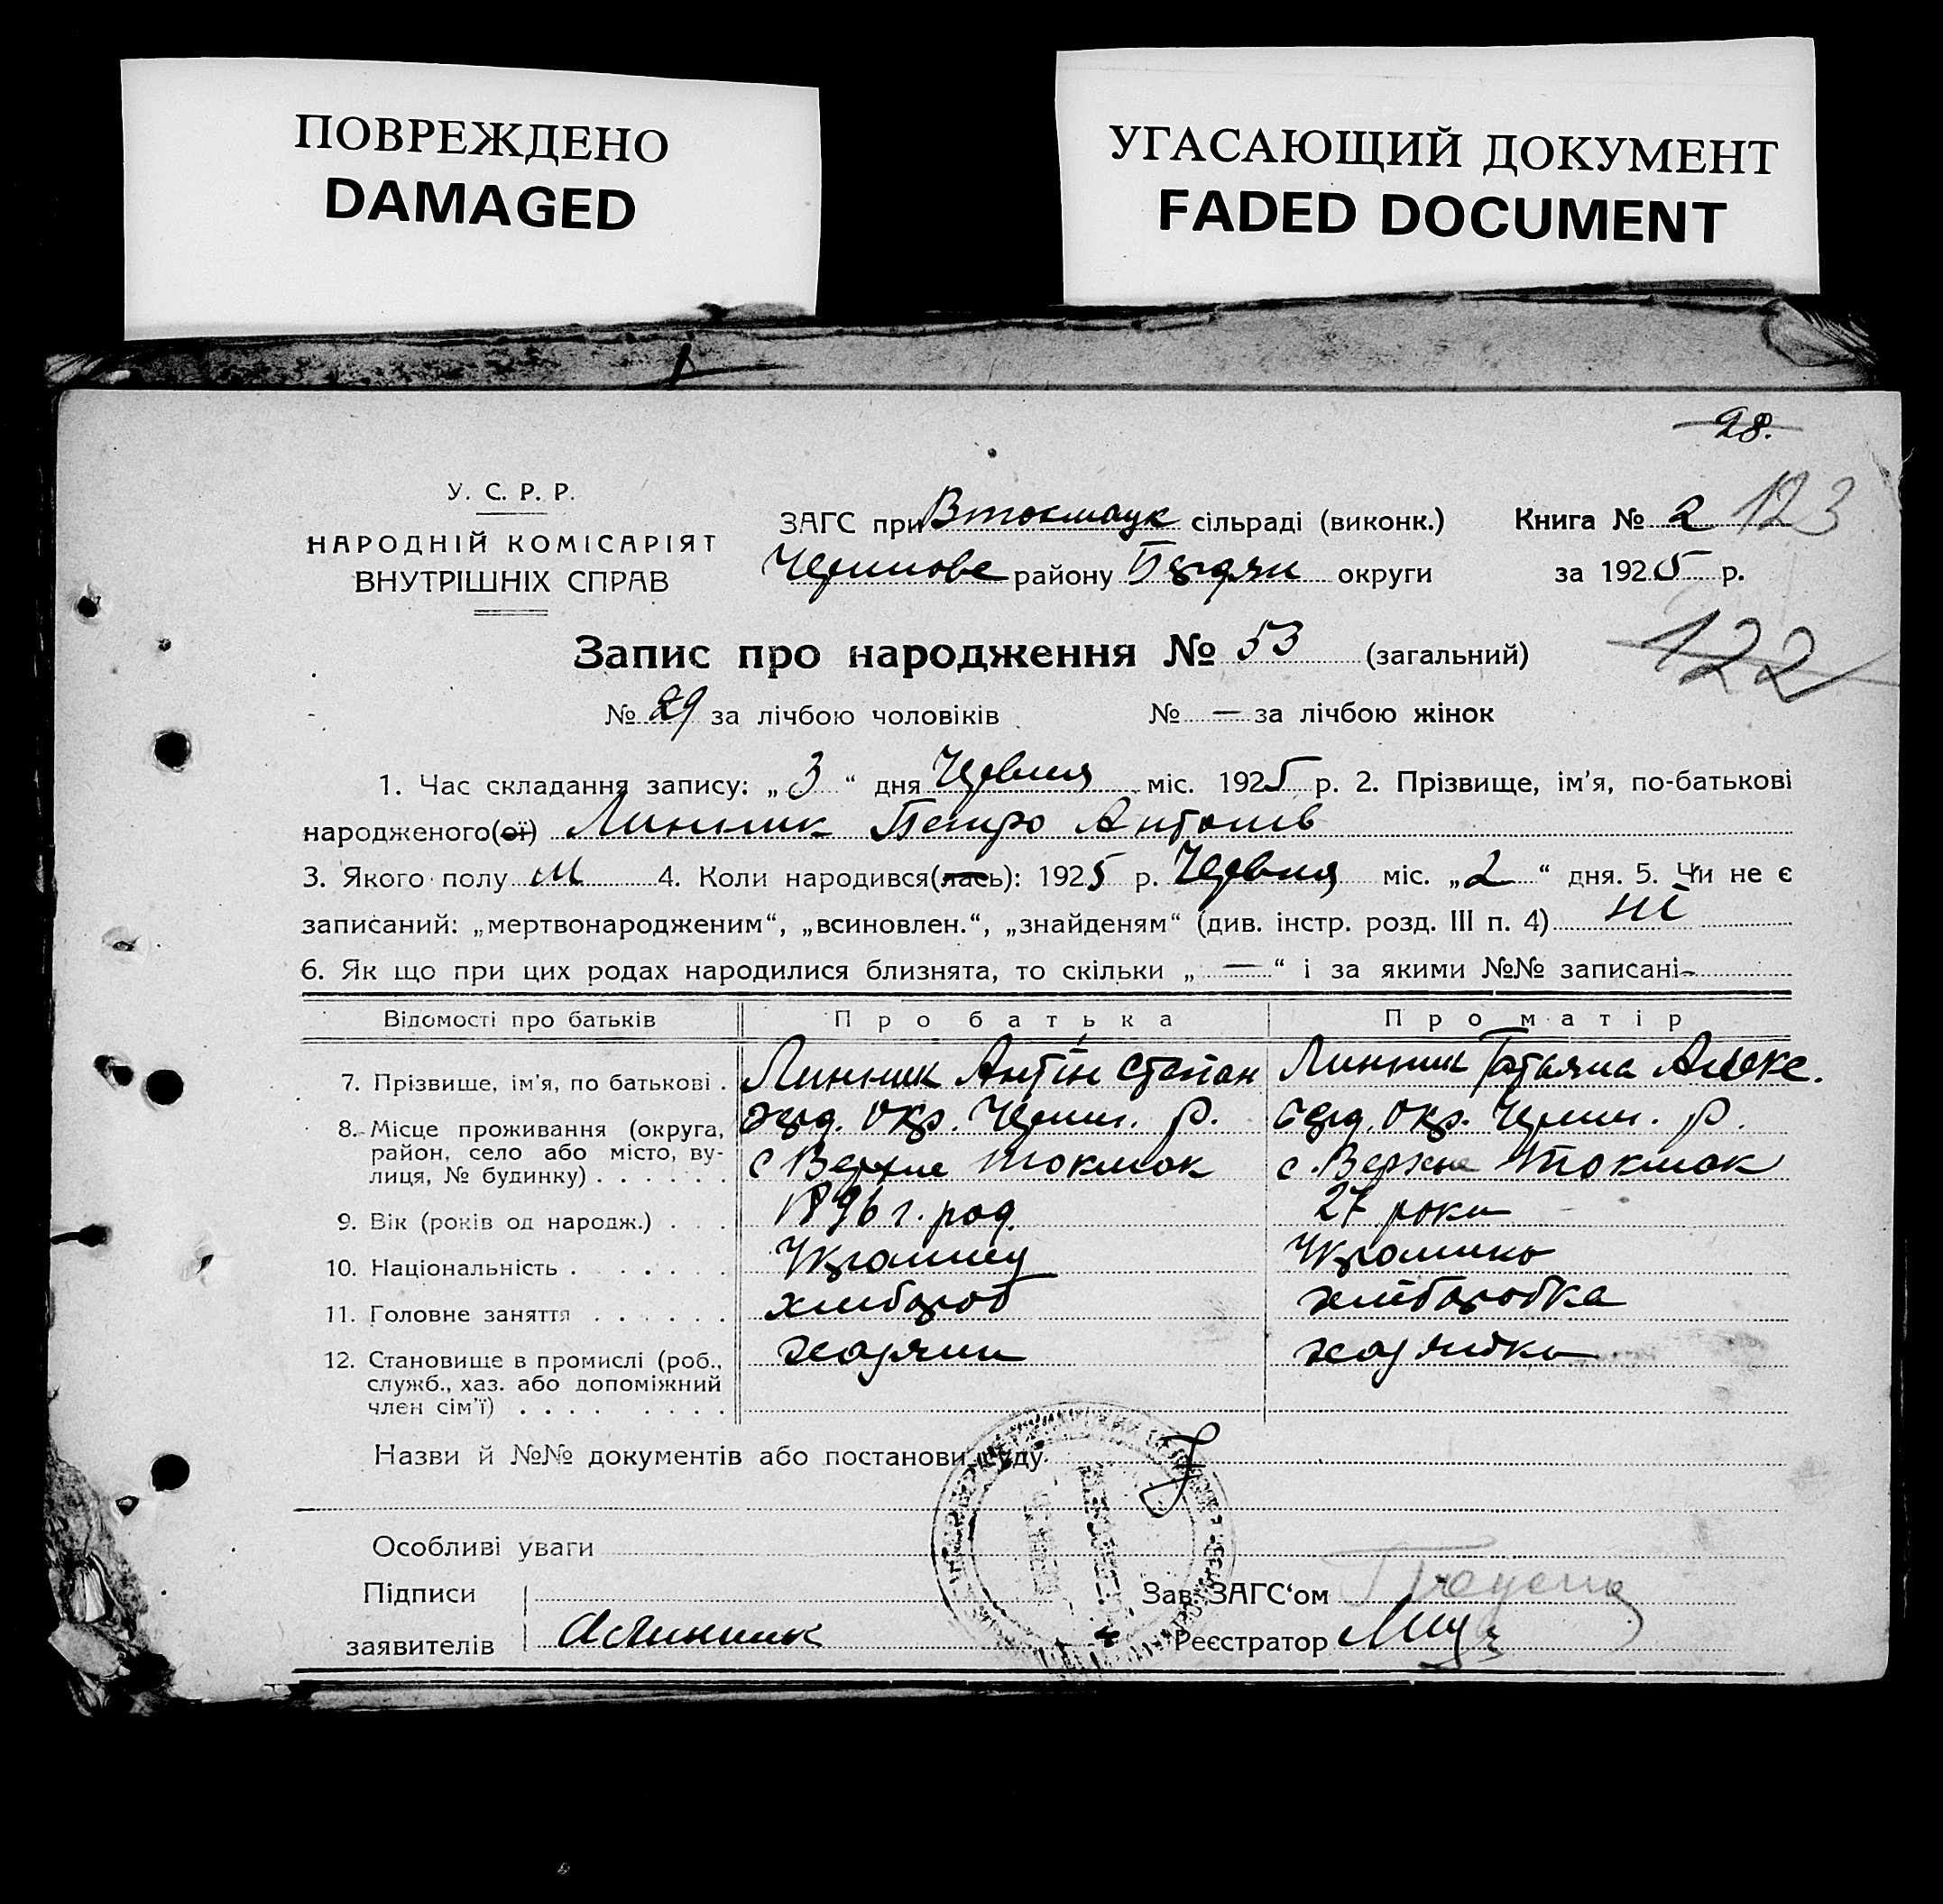 ПОВРЕЖДЕНО
DAMAGED
УГАСАЮЩИЙ ДОКУМЕНТ
FADED DOCUMENT
28.
У. С. Р. Р.
НАРОДНІЙ КОМІСАРІЯТ
ВНУТРІШНІХ СПРАВ
ЗАГС при Втокмацк сільраді (виконк.)
Книга № 2 123
району Бердян округи
за 1925 р.
Запис про народження № 53 (загальний)
122
№ 29 за лічбою чоловіків № — за лічбою жінок
1. Час складання запису: „3“ дня Червня міс. 1925 р. 2. Прізвище, ім'я, по-батькові
народженого(ої) Линник Петро Антонів
3. Якого полу м 4. Коли народився(лась): 1925 р. Червня міс. „2“ дня. 5. Чи не є
записаний: „мертвонародженим“, „всиновлен.“, „знайденям“ (див. інстр. розд. III п. 4) ні
6. Як що при цих родах народилися близнята, то скільки „—“ і за якими №№ записані -
Відомості про батьків Про батька Про матір
7. Прізвище, ім'я, по батькові . Линник Антін Степан Линник Татьяна Алекс.
8. Місце проживання (округа, район, село або місто, вулиця, № будинку) . . . . . .
Берд. Окр. Черниг. р. Берд. Окр. Черниг. р.
с Верхне Токмак с. Верхне Токмак
9. Вік (років од народж.) . . . 1896 г. род. 27 роки
10. Національність . . . . . Українец Українка
11. Головне заняття . . . . . . хлібороб хліборобка
12. Становище в промислі (роб., служб., хаз. або допоміжний член сім'ї) . . . . . . . .
хазяин хазяйка
Назви й №№ документів або постанови суду
Особливі уваги
Підписи
заявителів А Линник
Зав. ЗАГС'ом
Реєстратор